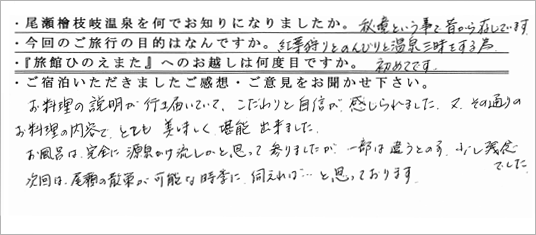 ・尾瀬檜枝岐温泉を何でお知りになりましたか。 秘境という事で昔から存じています
・今回のご旅行の目的はなんですか。 紅葉狩りとのんびりと温泉三昧をする為
・『旅館ひのえまた』へのお越しは何度目ですか。 初めてです。
・ご宿泊いただきましたご感想・ご意見をお聞かせ下さい。
お料理の説明が行き届いていて、こだわりと自信が感じられました。又、その通りの
お料理の内容で、とても美味しく堪能出来ました。
お風呂は、完全に源泉かけ流しかと思って参りましたが、一部は違うとの事、少し残念
でした。
次回は、尾瀬の散策が可能な時季に伺えれば…と思っております。